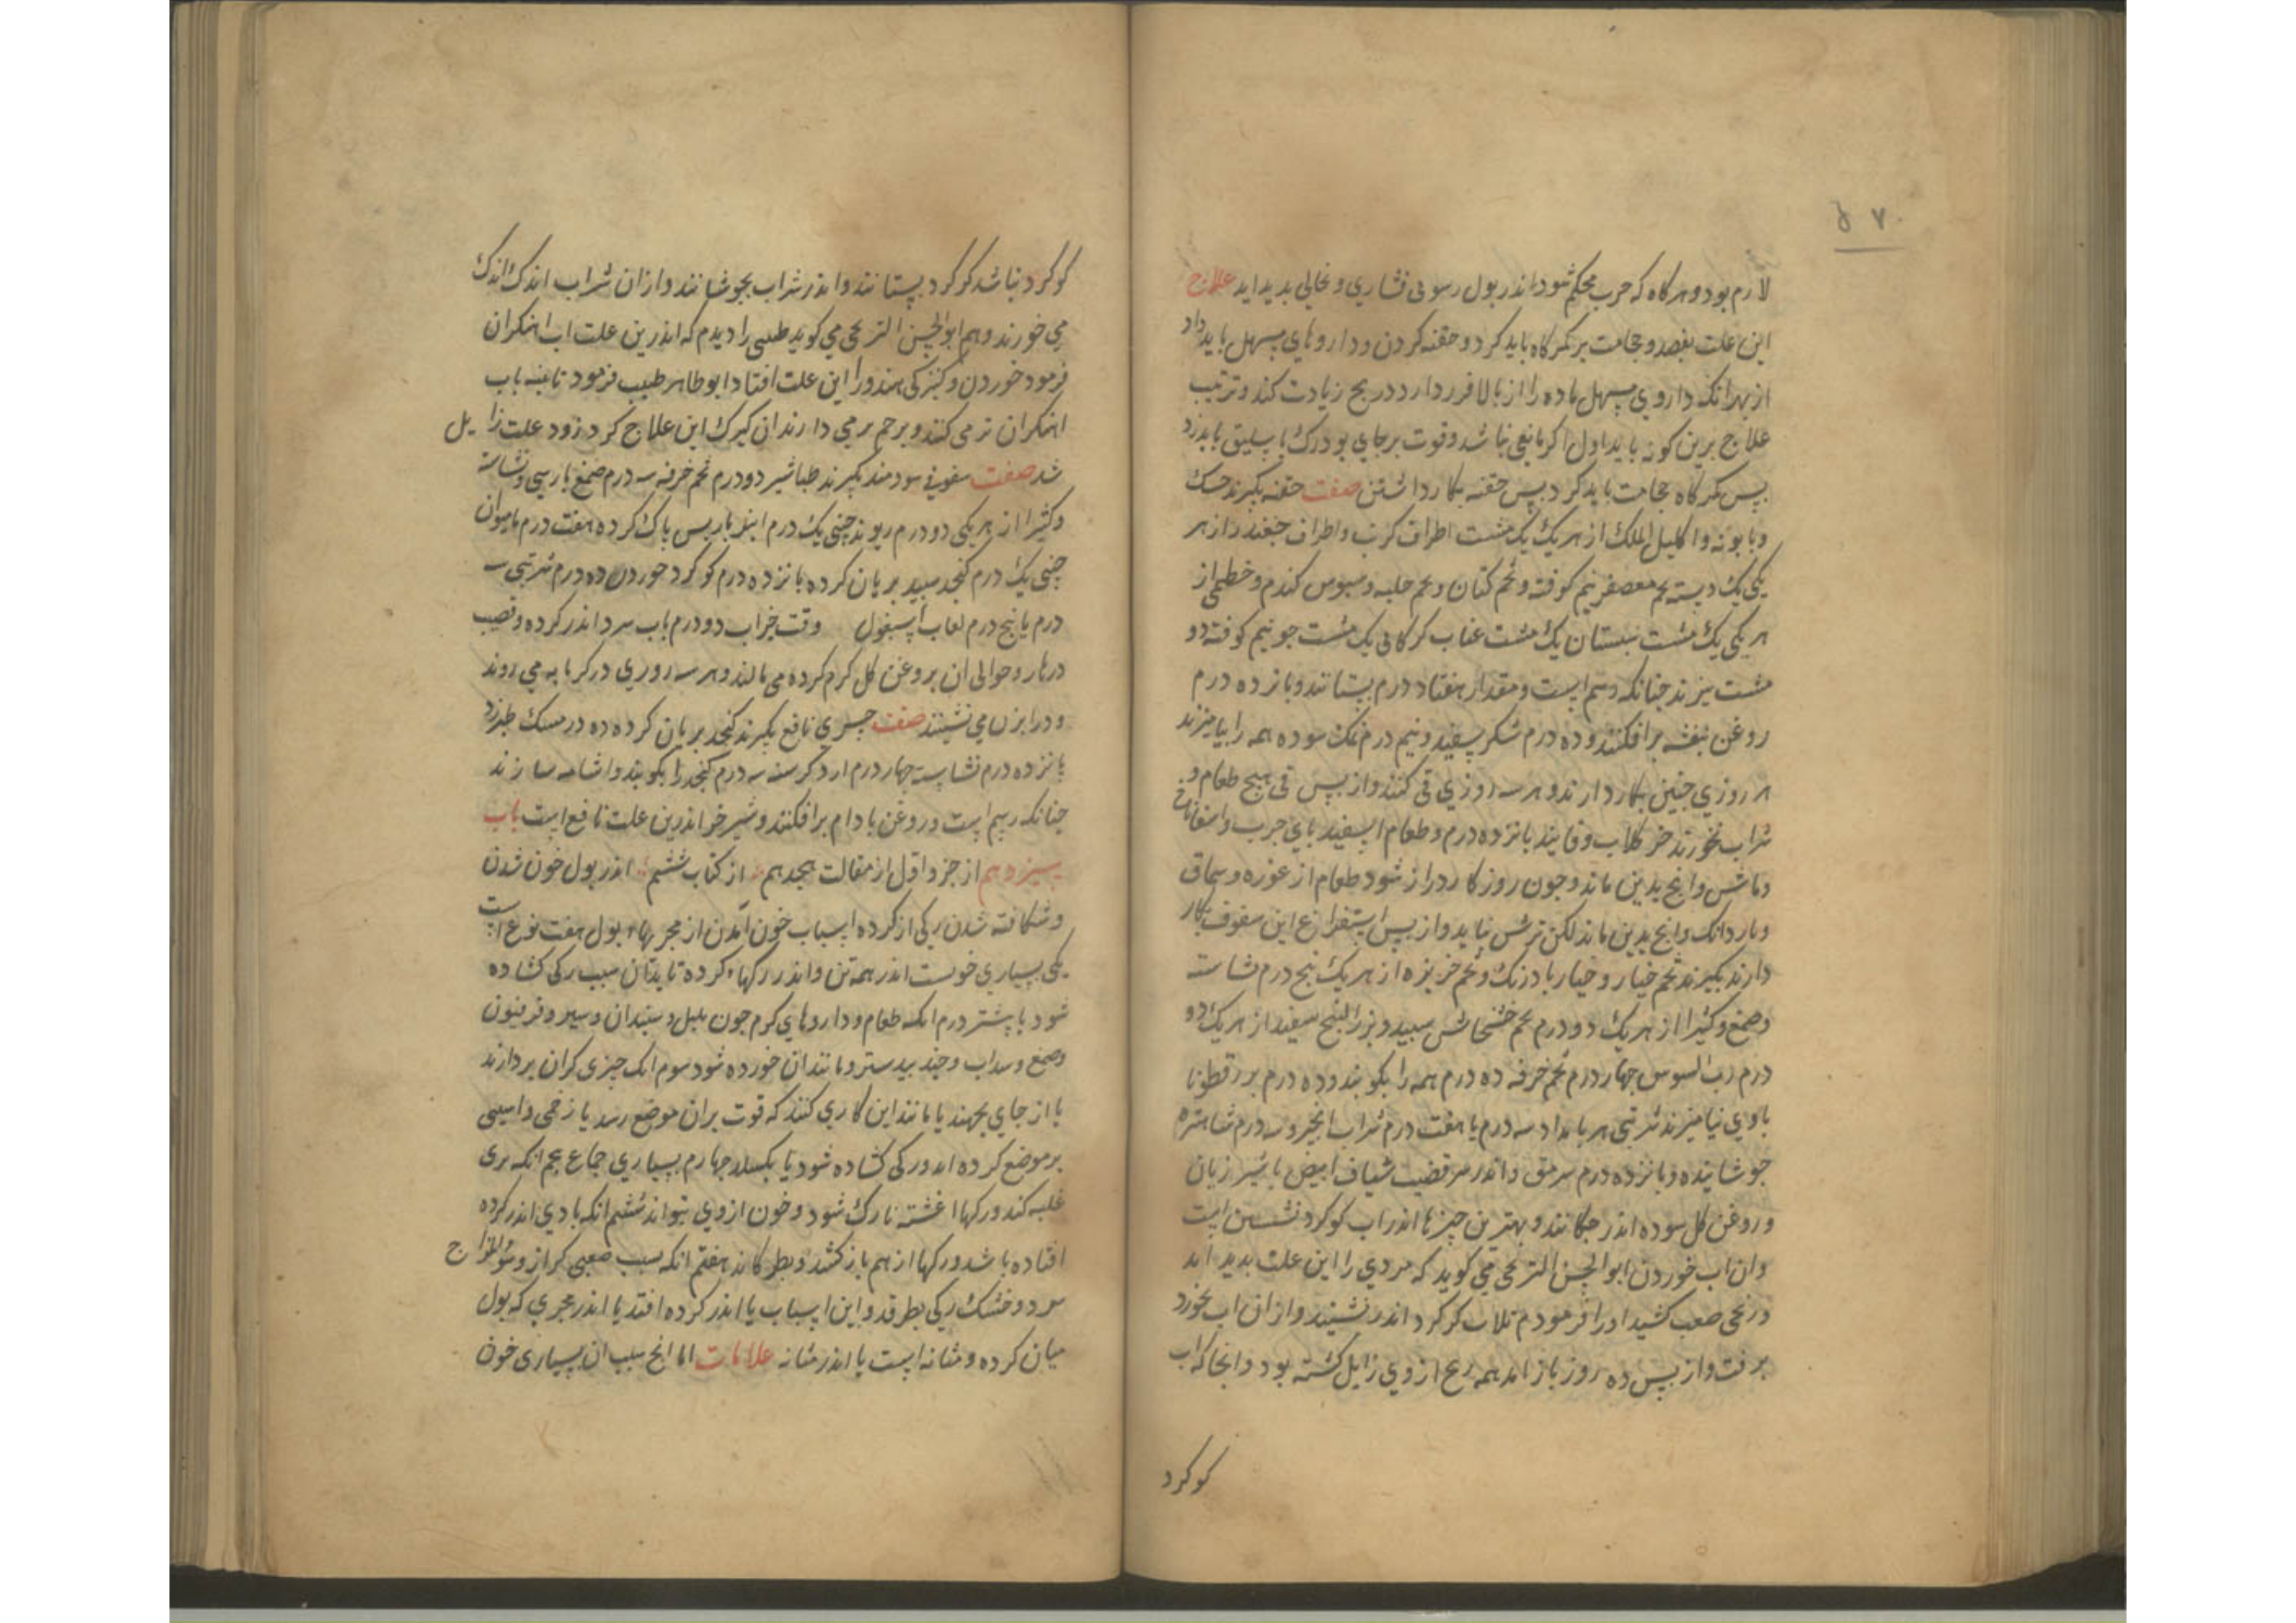 ۵۷۰
لازم بود و هر کاه که جرب محکم شود اندر بول رسوبی نشاری و نخالی بدید اید علاج
این علت بفصد و حجامت بر کمرکاه باید کرد و حقنه کردن و داروهای مسهل باید داد
از بهر انک داروی مسهل ماده را از بالا فرود ارد در رنج زیادت کند و ترتیب
علاج برین کونه باید اول اکر مانعی نباشد و قوت برجای بود رک باسلیق باید زد
بس کمرکاه حجامت باید کرد بس حقنه بکار داشتن صفت حقنه بکیرند حسک
و بابونه و اکلیل الملک از هر یک یک مشت اطراف کرنب و اطراف جغندر از هر
یکی یک دسته تخم معصفر نیم کوفته و تخم کتان و تخم حلبه و سبوس کندم و خطمی از
هر یکی یک مشت سبستان یک مشت عناب کرکانی یک مشت جو نیم کوفته دو
مشت بپزند جنانکه رسم است و مقدار هفتاد درم بستانند و بانزده درم
روغن بنفشه برافکنند و ده درم شکر سفید و نیم درم نمک سوده همه را بیامیزند
هر روزی جنین بکار دارند و هر سه روزی قی کنند و از بس قی هیچ طعام و
شراب نخورند جز کلاب و فانید بانزده درم و طعام اسفید بای جرب و اسفاناخ
و ماش و انج بدین ماند و جون روزکار دراز شود طعام از غوره و سماق
و ناردانک و انج بدین ماند لکن ترش نباید و از بس استفراغ این سفوف بکار
دارند بکیرند تخم خیار و خیار بادرنک و تخم خربزه از هر یک بنج درم نشاسته
و صمغ و کثیرا از هر یک دو درم تخم خشخاش سبید و بزر البنج سفید از هر یک دو
درم رب السوس جهار درم تخم خرفه ده درم همه را بکوبند و ده درم بزرقطونا
با وی بیامیزند شربتی هر بامداد سه درم یا هفت درم شراب انجیر و سه درم شاهتره
جوشانیده و بانزده درم سرمق و اندر سر قضیب شیاف ابیض با شیر زنان
و روغن کل سوده اندر جکانند و بهترین جیزها اندر اب کوکرد نشستن است
و ان اب خوردن ابوالحسن الترنجی می کوید که مردی را این علت بدید امد
و رنجی صعب کشید او را فرمودم تا در اب کوکرد اندر نشیند و از ان اب بخورد
برفت و از بس ده روز باز امد همه رنج از وی زایل کشته بود و انجا که اب
کوکرد
کوکرد نباشد کوکرد بستانند و اندر شراب بجوشانند و از ان شراب اندک اندک
می خورند و هم ابوالحسن الترنجی می کوید طبیبی را دیدم که اندرین علت اب اهنکران
فرمود خوردن و کنیزکی هندو را این علت افتاد ابوطاهر طبیب فرمود تا بنبه باب
اهنکران تر می کنند و بر حم بر می دارند ان کنیزک این علاج کرد زود علت زایل
شد صفت سفوفی سودمند بکیرند طباشیر دو درم تخم خرفه سه درم صمغ بارسی و نشاسته
و کثیرا از هر یکی دو درم ریوند جینی یک درم انبرباریس باک کرده هفت درم مامیران
جینی یک درم کنجد سبید بریان کرده بانزده درم کوکرد خوردن ده درم شربتی سه
درم با بنج درم لعاب اسبغول وقت خواب دو درم باب سرد اندر کرده و قضیب
و زهار و حوالی ان بروغن کل کرم کرده می مالند و هر سه روزی در کرمابه می روند
و در ابزن می نشینند صفت جیزی نافع بکیرند کنجد بریان کرده ده درمسنک طبرزد
بانزده درم نشاسته جهار درم ارد کرسنه سه درم کنجد را بکوبند و اشامه سازند
جنانکه رسم است و روغن بادام برافکنند و شیر خر اندرین علت نافع است باب
سیزدهم از جزو اول از مقالت هجدهم از کتاب ششم اندر بول خون شدن
و شکافته شدن رکی از کرده اسباب خون امدن از مجریهاء بول هفت نوع است
یکی بسیاری خونست اندر همه تن و اندر رکهاء کرده تا بدان سبب رکی کشاده
شود یا بشتر درم انکه طعام و داروهای کرم جون بلبل و سبندان و سیر و فرفیون
و صمغ و سداب و جندبیدستر و مانند ان خورده شود سوم انک جیزی کران بردارند
یا از جای بجهند یا مانند این کاری کنند که قوت بران موضع رسد یا زخمی و اسیبی
بر موضع کرده اید و رکی کشاده شود یا بکسلد جهارم بسیاری جماع بنجم انکه تری
غلبه کند و رکها اغشته نازک شود و خون از وی بتراند ششم انکه بادی اندر کرده
افتاده باشد و رکها از هم باز کشد و بطرکاند هفتم انکه سبب ضعیفی کراز و سؤالمزاج
سرد و خشک رکی بطرقد و این اسباب یا اندر کرده افتد یا اندر مجری که بول
میان کرده و مثانه است یا اندر مثانه علامات اما انج سبب ان بسیاری خون